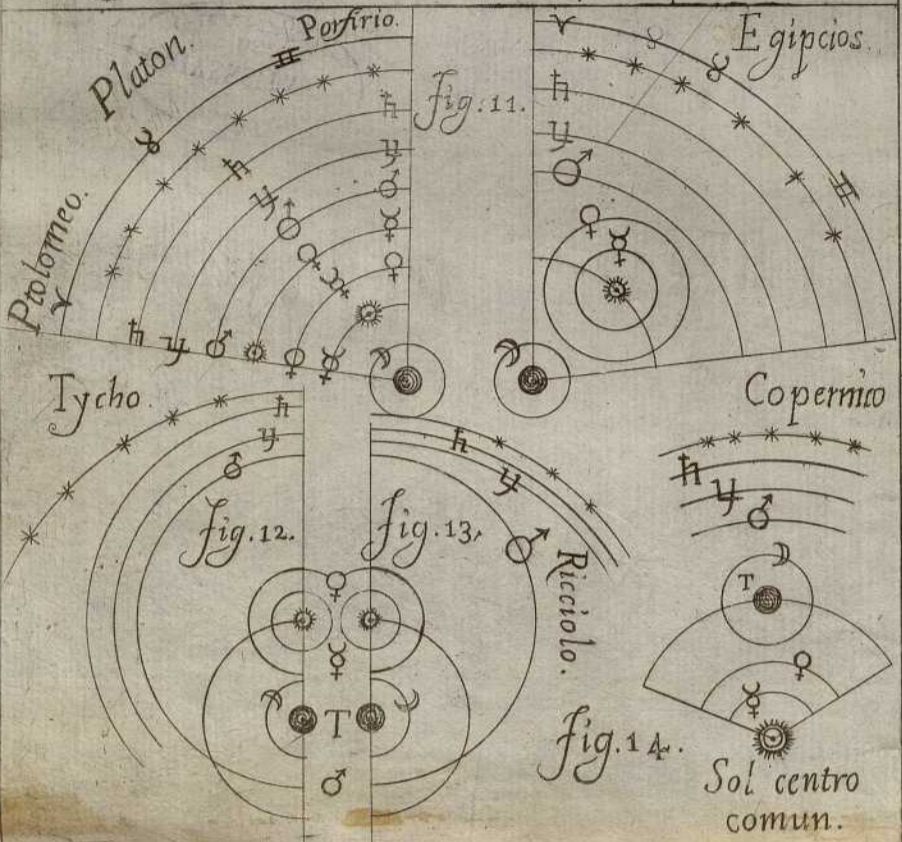 Ptolomeo.
Platon.
Porfirio.
fig. 11.
Egipcios.
Tycho.
fig. 12.
fig. 13.
Ricciolo.
Copernico
T
T
fig. 14.
Sol centro
comun.